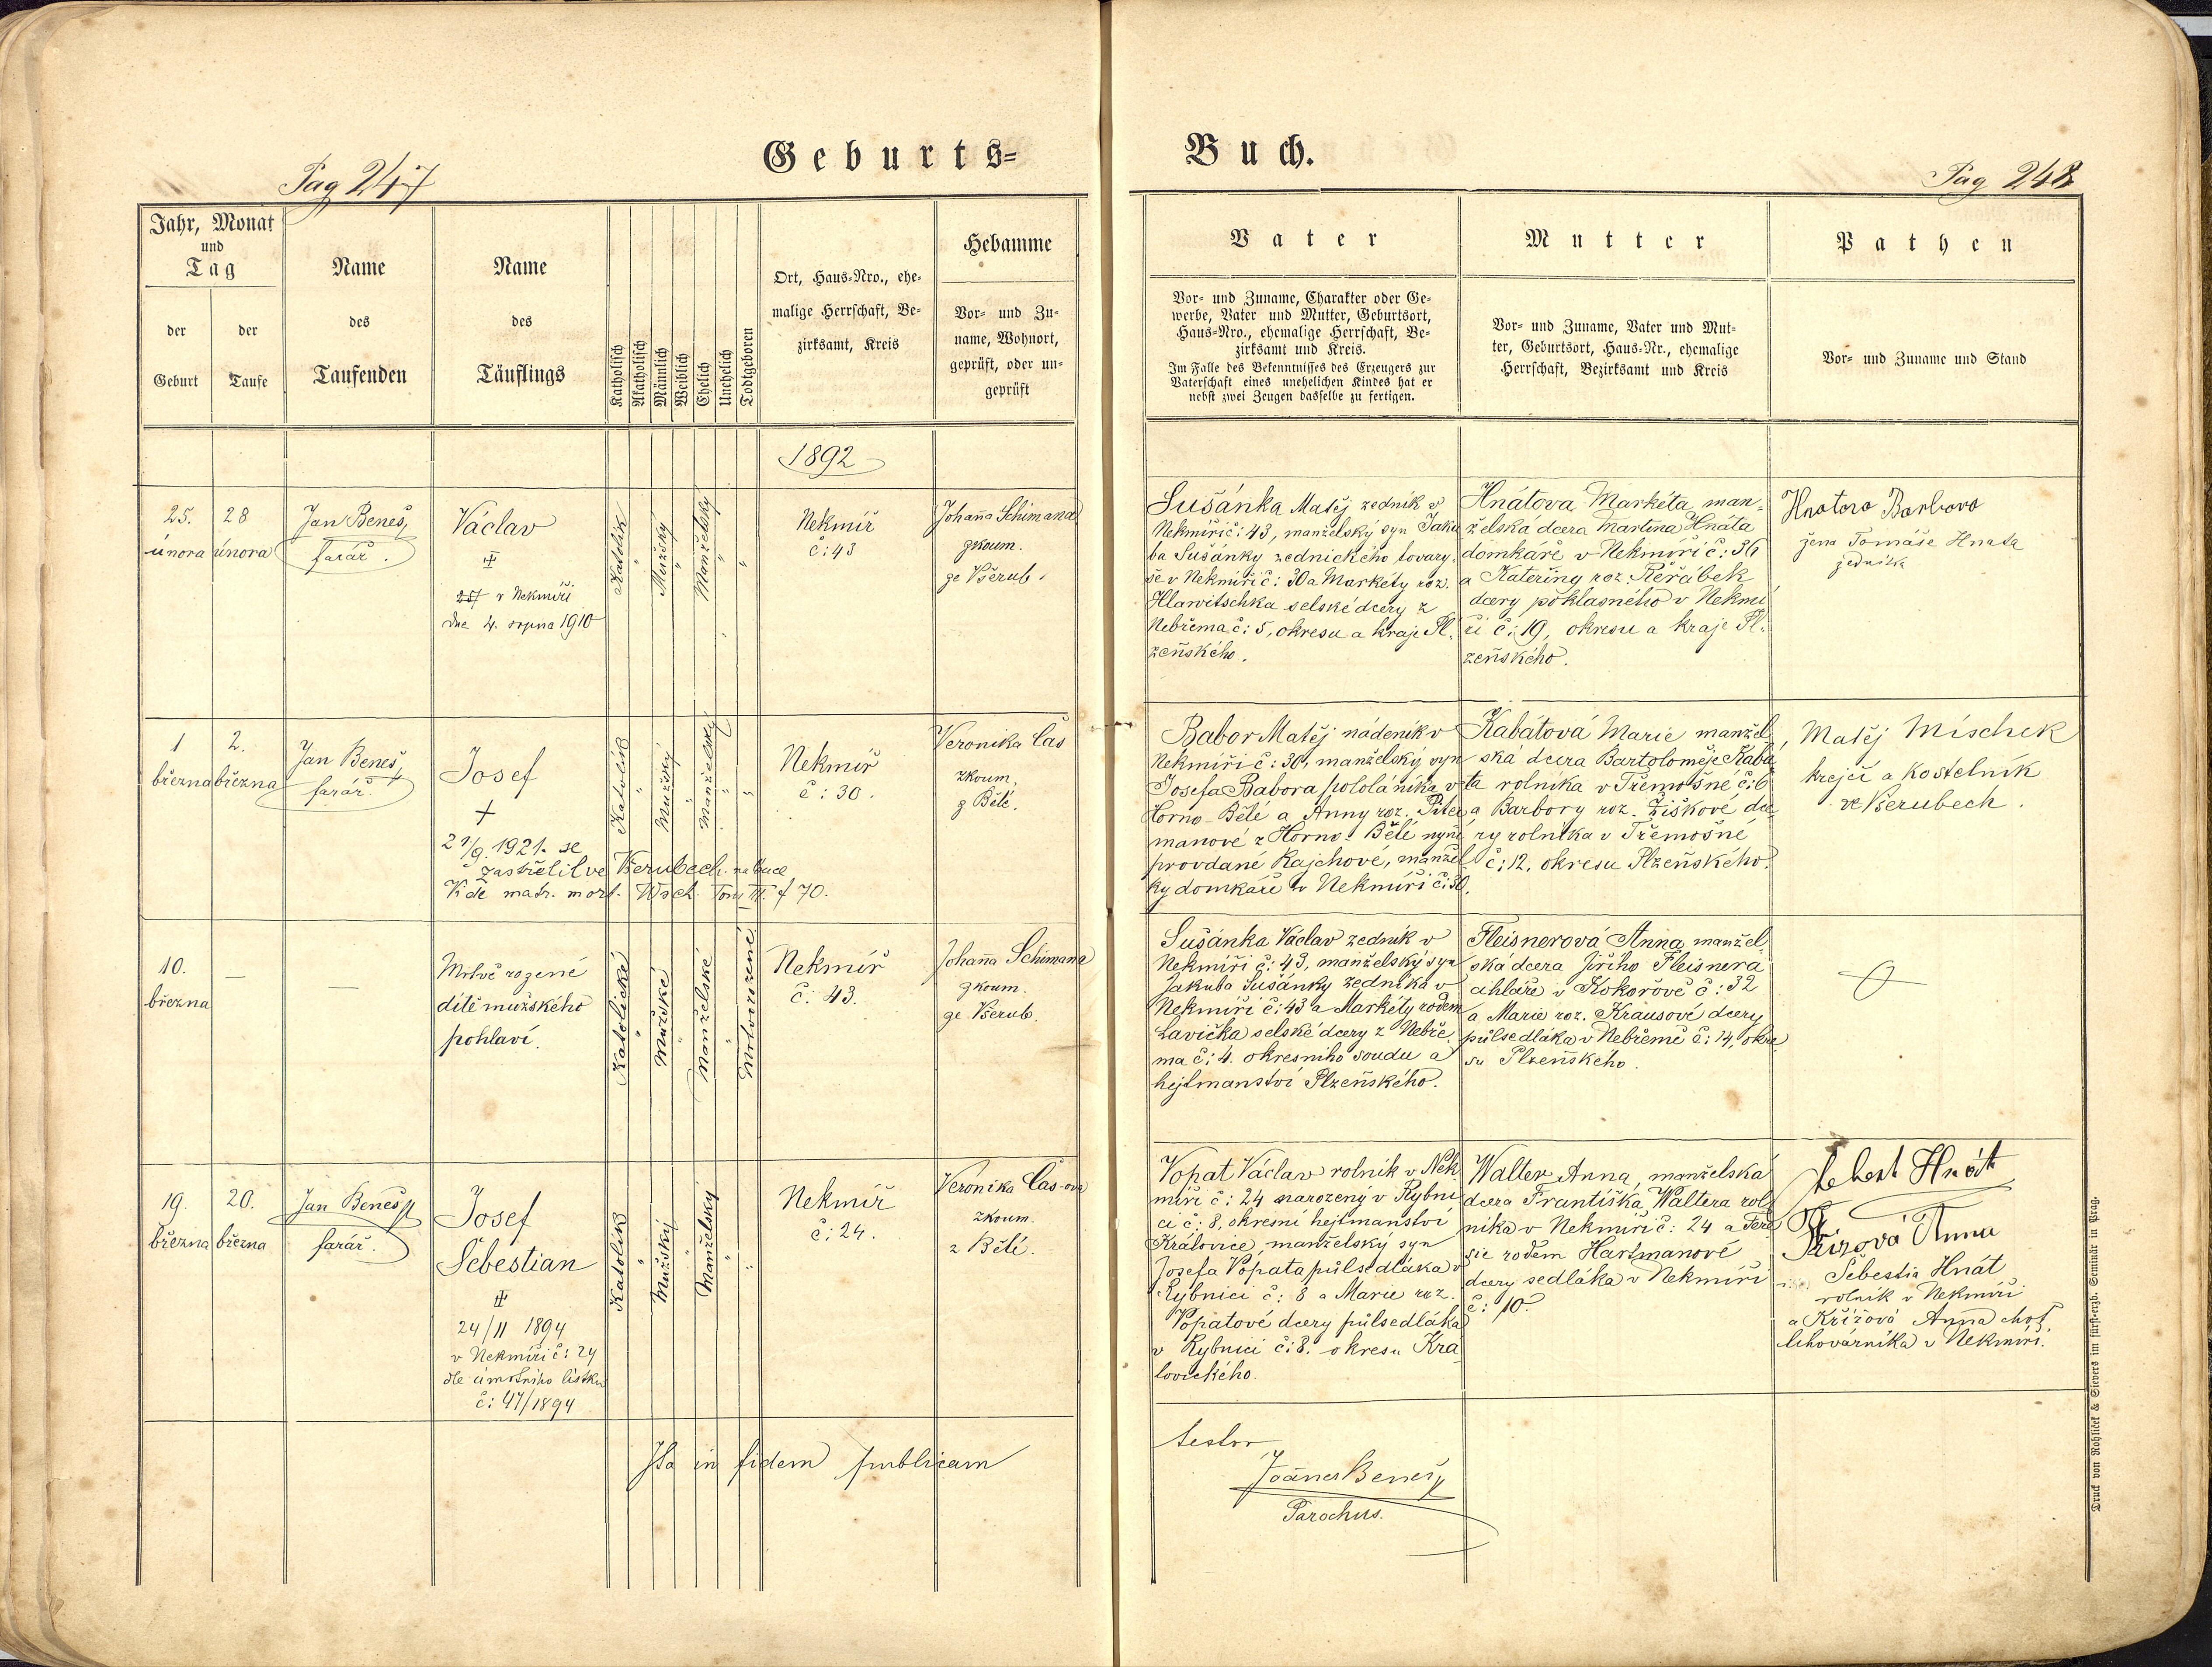 Pag 247
Geburts=
Buch.
Pag 248
Jahr, Monat
und
Tag
der
Geburt
der
Taufe
Name
des
Taufenden
Name
des
Täuflings
Katholisch
Akatholisch
Männlich
Weiblich
Ehelich
Unehelich
Todtgeboren
Ort, Haus=Nro., ehe=
malige Herrschaft, Be=
zirksamt, Kreis
Hebamme
Vor= und Zu=
name, Wohnort,
geprüft, oder un=
geprüft
Vater
Vor= und Zuname, Charakter oder Ge=
werbe, Vater und Mutter, Geburtsort,
Haus=Nro., ehemalige Herrschaft, Be=
zirksamt und Kreis.
Im Falle des Bekenntnisses des Erzeugers zur
Vaterschaft eines unehelichen Kindes hat er
nebst zwei Zeugen dasselbe zu fertigen.
Mutter
Vor= und Zuname, Vater und Mut=
ter, Geburtsort, Haus=Nr., ehemalige
Herrschaft, Bezirksamt und Kreis
Pathen
Vor= und Zuname und Stand
1892
25.
února
28
února
Jan Beneš,
farář.
Václav
v Nekmíři
dne 4. srpna 1910
Katolík
"
Mužský
"
Manželský
"
"
Nekmíř
č: 43
Johana Schimana
zkoum.
ze Všerub.
Sušánka Matěj zedník v
Nekmíři č: 43, manželský syn Jaku
ba Sušánky zednického tovary
še v Nekmíři č: 30 a Markéty roz.
Hlawitschka selské dcery z
Nebřema č: 5, okresu a kraje Pl.
zeňského.
Hnátova Markéta, man=
želská dcera Martina Hnáta
domkáře v Nekmíři č: 36
a Kateřiny roz. Řeřábek
dcery poklasného v Nekmí
ři č: 19, okresu a kraje Pl.
zeňského.
Hnatova Barbora
žena Tomáše Hnata
zedníka
1
března
2.
března
Jan Beneš,
farář.
Josef
+
27/9. 1921. se
zastřelil ve Všerubech
K de matr. mort. Wsch. Tom III. f 70.
Katolík
"
Mužský
"
Manželský
"
"
Nekmíř
č: 30.
Veronika Čas
zkoum,
z Bělé.
Babor Matěj nádeník v
Nekmíři č: 30, manželský syn
Josefa Babora pololáníka v
Horno-Bělé a Anny roz. Pite
manové z Horno-Bělé nyní
provdané Rajchové, manžel
ky domkáře v Nekmíři č: 30.
Kabátová Marie manžel
ská dcera Bartoloměje Kabá
ta rolníka v Třemošné č: 6
a Barbory roz. Žiškové dce
ry rolníka v Třemošné
č: 12, okresu Plzeňského.
Matěj Mischek
krejčí a kostelník
ve Všerubech.
10.
března
—
—
Mrtvě rozené
dítě mužského
pohlaví.
Katolické
"
Mužské
"
Manželské
"
Mrtvorozené
Nekmíř
č: 43.
Johana Schimana
zkoum.
ze Všerub.
Sušánka Václav zedník v
Nekmíři č: 43, manželský syn
Jakuba Sušánky zedníka v
Nekmíři č: 43 a Markéty rodem
Lavička selské dcery z Nebře
ma č: 4. okresního soudu a
hejtmanství Plzeňského.
Fleisnerová Anna, manžel
ská dcera Jiřího Fleisnera
cihláře v Kokořově č: 32
a Marie roz. Krausové dcery
půlsedláka v Nebřemě č: 14, okre
su Plzeňského.
19.
března
20.
března
Jan Beneš,
farář.
Josef
Šebestian
24/11 1894
v Nekmíři č: 24
dle úmrtního lístku
č: 47/1894
Katolík
"
Mužský
"
Manželský
"
"
Nekmíř
č: 24.
Veronika Čas-ová
zkoum.
z Bělé.
Vopat Václav rolník v Nek
míři č: 24 narozený v Rybni
ci č: 8, okresní hejtmanství
Královice, manželský syn
Josefa Vopata půlsedláka v
Rybnici č: 8 a Marie roz.
Vopatové dcery půlsedláka
v Rybnici č: 8. okresu Kra
lovického.
Walter Anna, manželská
dcera Františka Waltera rol
níka v Nekmíři č: 24 a Tere
sie rodem Hartmanové
dcery sedláka v Nekmíři
č: 10.
Hnát
Křizová Anna
Šebestia Hnát
rolník v Nekmíři
a Křížová Anna choť
lihovárníka v Nekmíři.
Ita in fidem publicam
testor
Joānes Beneš,
Parochus.
Druck von Rohliček & Sievers im fürst=erzb. Seminär in Prag.